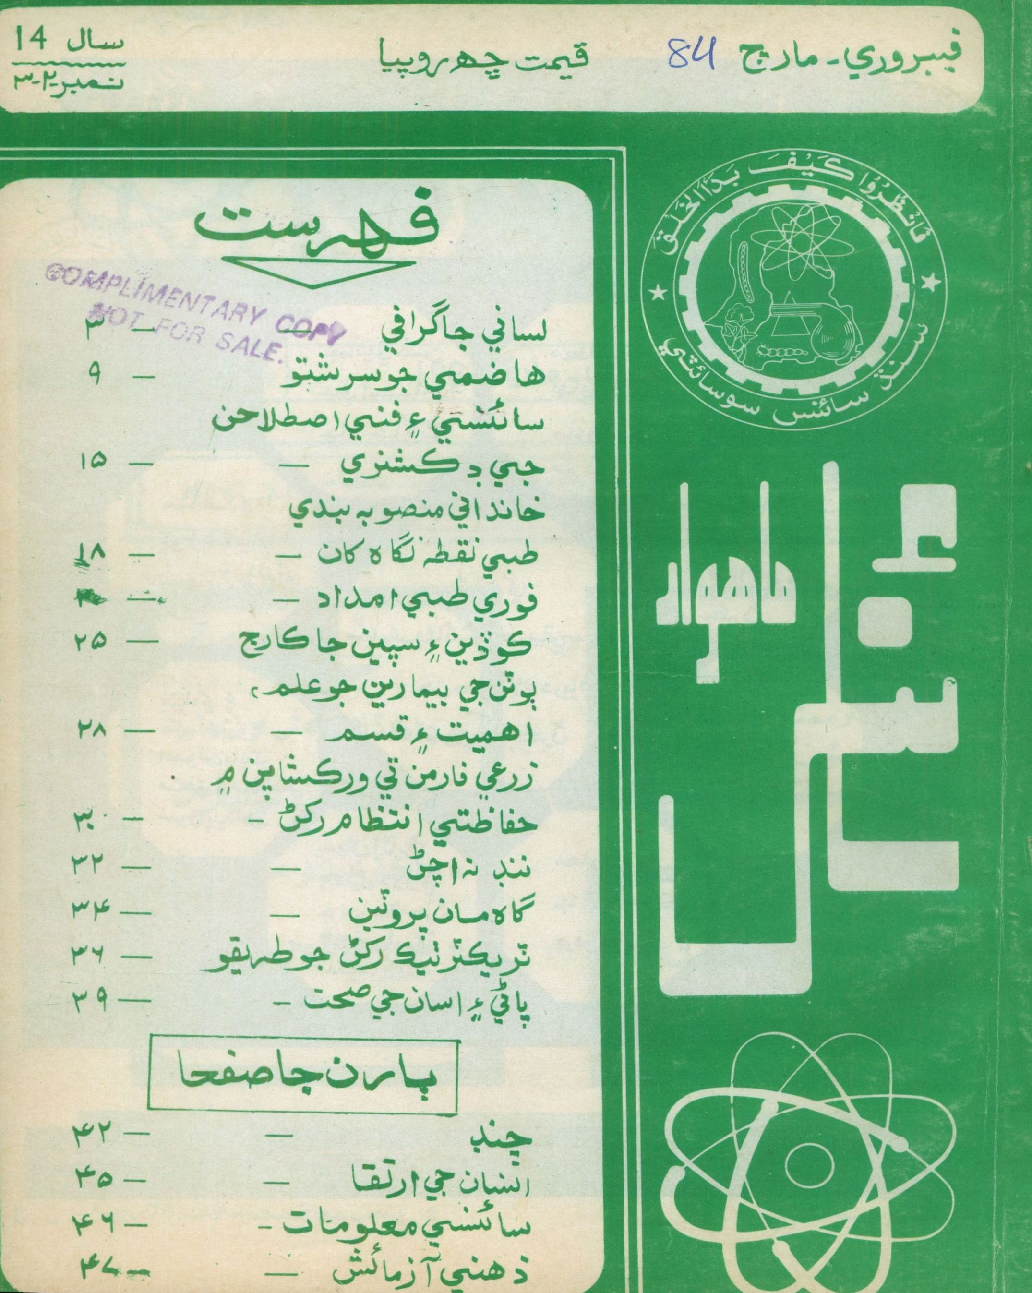 فيبروري۔ مارچ 84
قيمت ڇھ روپيا
سال 14
نمبر ۲-۳
فانظروا كيف بدأ الخلق
سنڌ سائنس سوسائٽي
ماهوار
سائنس
فهرست
COMPLIMENTARY COPY
NOT FOR SALE.
لساني جاگرافي — ۳
هاضمي جو سرشتو — ۹
سائنسي ۽ فني اصطلاحن
جي ڊڪشنري — ۱۵
خانداني منصوبه بندي
طبي نقطه نگاه کان — ۱۸
فوري طبي امداد —
ڪوڏين ۽ سپين جا ڪارج — ۲۵
ٻوٽن جي بيمارين جو علم،
اهميت ۽ قسم — ۲۸
زرعي فارمن تي ورڪشاپن ۾
حفاظتي انتظام رکڻ — ۳۰
ننڊ نه اچڻ — ۳۲
گاه مان پروٽين — ۳۴
ٽريڪٽر ٺيڪ رکڻ جو طريقو — ۳۶
پاڻي ۽ اسان جي صحت — ۳۹
ٻارن جا صفحا
چنڊ — ۴۲
انسان جي ارتقا — ۴۵
سائنسي معلومات — ۴۶
ذهني آزمائش — ۴۷